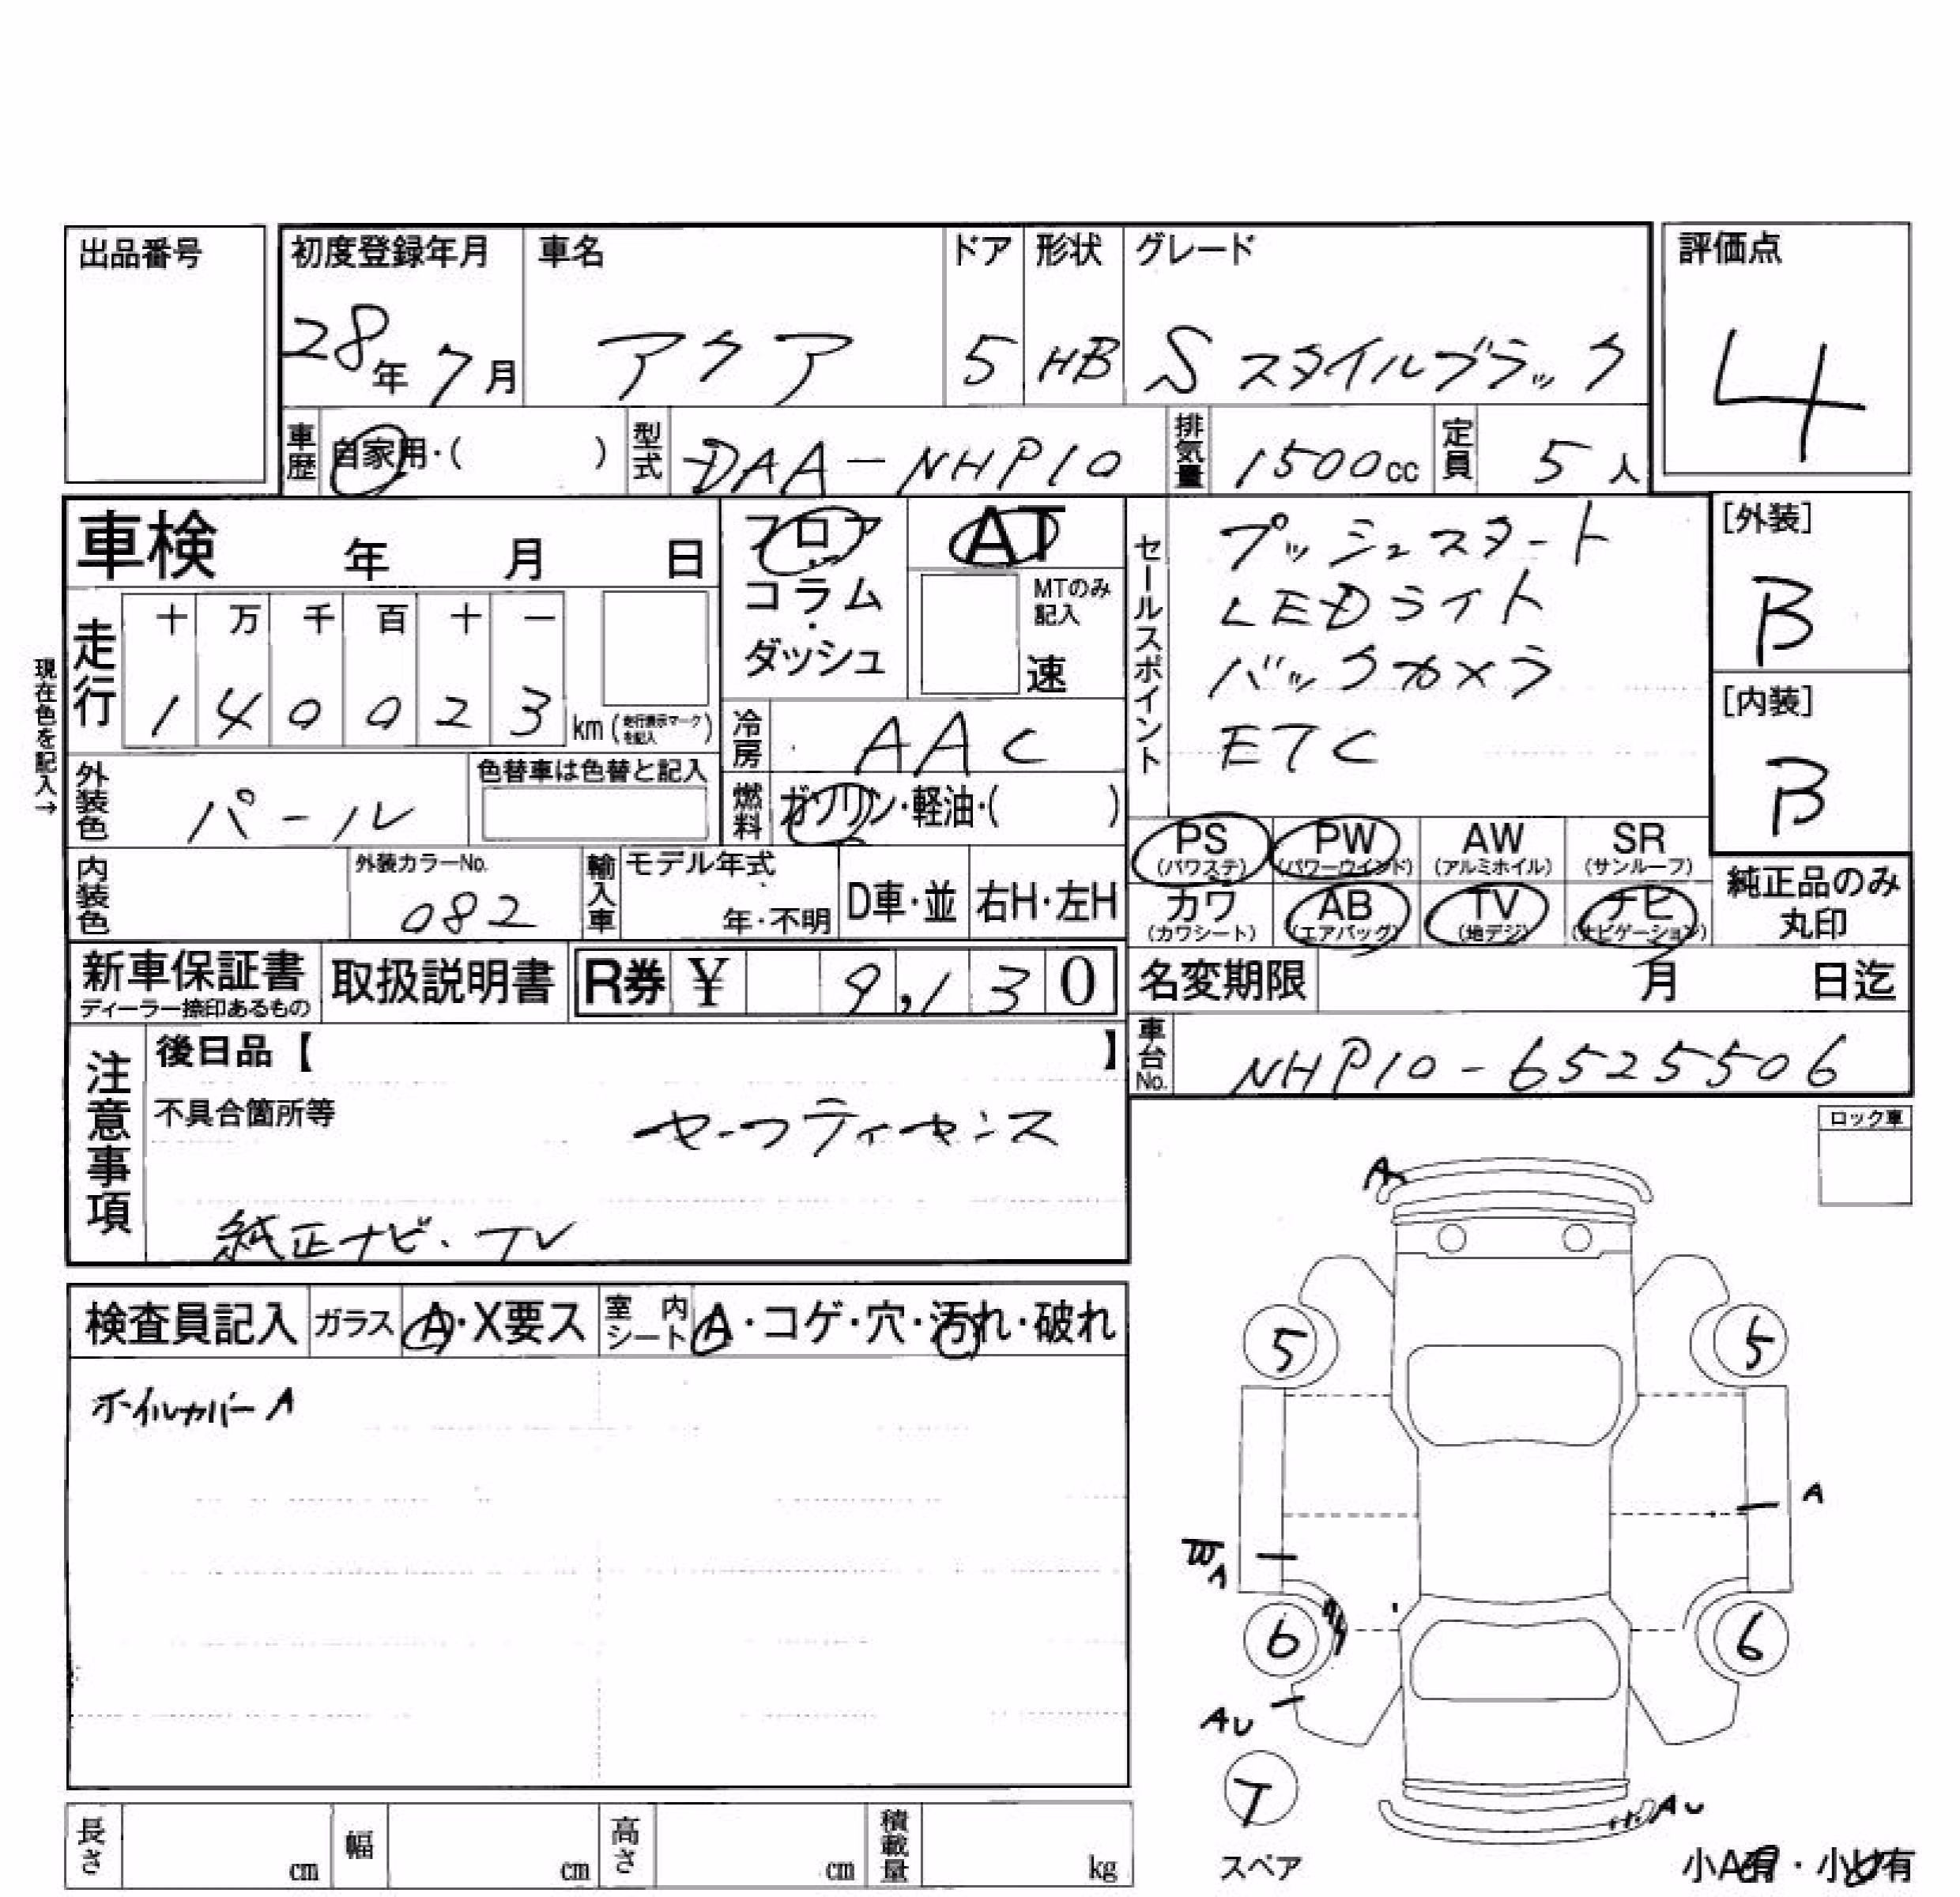 出品番号
初度登録年月 車名 ドア 形状 グレード 評価点
28年 7月 アクア 5 HB S スタイルブラック 4
車歴 自家用・( ) 型式 DAA-NHP10 排気量 1500cc 定員 5人
車検 年 月 日
フロア・コラム・ダッシュ
AT
MTのみ記入
速
セールスポイント
プッシュスタート
LEDライト
バックカメラ
ETC
[外装]
B
[内装]
B
現在色を記入→
走行 十 万 千 百 十 一
1 4 0 0 2 3 km (走行表示マークを記入)
冷房 AAC
外装色 パール 色替車は色替と記入
燃料 ガソリン・軽油・( )
PS (パワステ) PW (パワーウインド) AW (アルミホイル) SR (サンルーフ)
カワ (カワシート) AB (エアバッグ) TV (地デジ) ナビ (ナビゲーション)
純正品のみ丸印
内装色 外装カラーNo. 082 輸入車 モデル年式 年・不明 D車・並 右H・左H
新車保証書 ディーラー捺印あるもの 取扱説明書 R券 ¥ 9,130
名変期限 月 日迄
車台No. NHP10-6525506
注意事項
後日品【 】
不具合箇所等
セーフティセンス
純正ナビ・TV
ロック車
検査員記入 ガラス A・X要ス 室内シート A・コゲ・穴・汚れ・破れ
ホイルカバーA
A
5 5
A
A
6 6
AU
T
スペア
AU
小A有・小U有
長さ cm 幅 cm 高さ cm 積載量 kg